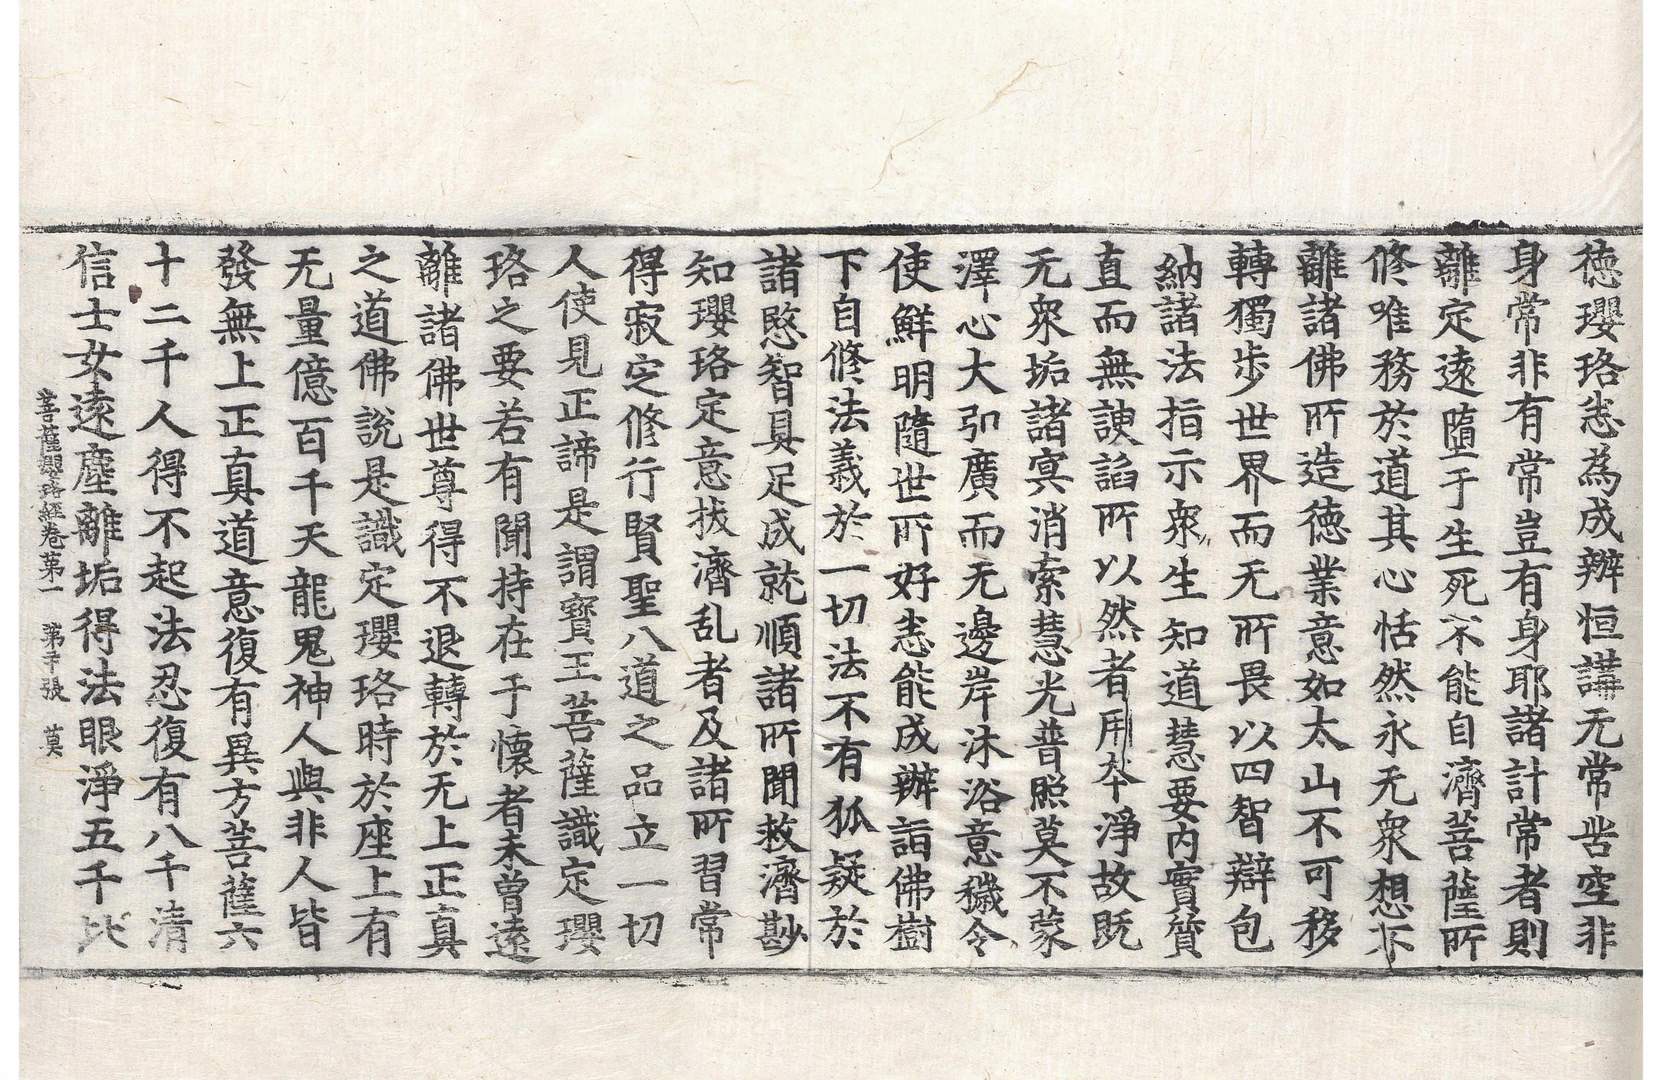 德瓔珞悉為成辦恒講无常苦空非
身常非有常豈有身耶諸計常者則
離定遠墮于生死不能自濟菩薩所
修唯務於道其心恬然永无衆想不
離諸佛所造德業意如太山不可移
轉獨步世界而无所畏以四智辯包
納諸法指示衆生知道慧要內實質
直而無諛諂所以然者用本淨故既
无衆垢諸冥消索慧光普照莫不蒙
澤心大弘廣而无邊岸沐浴意穢令
使鮮明隨世所好悉能成辦詣佛樹
下自修法義於一切法不有狐疑於
諸愍智具足成就順諸所聞救濟尠
知瓔珞定意拔濟乱者及諸所習常
得寂定修行賢聖八道之品立一切
人使見正諦是謂寶王菩薩識定瓔
珞之要若有聞持在于懷者未曾遠
離諸佛世尊得不退轉於无上正真
之道佛說是識定瓔珞時於座上有
无量億百千天龍鬼神人與非人皆
發無上正真道意復有異方菩薩六
十二千人得不起法忍復有八千清
信士女遠塵離垢得法眼淨五千比
菩薩瓔珞經卷第一 第 張 莫